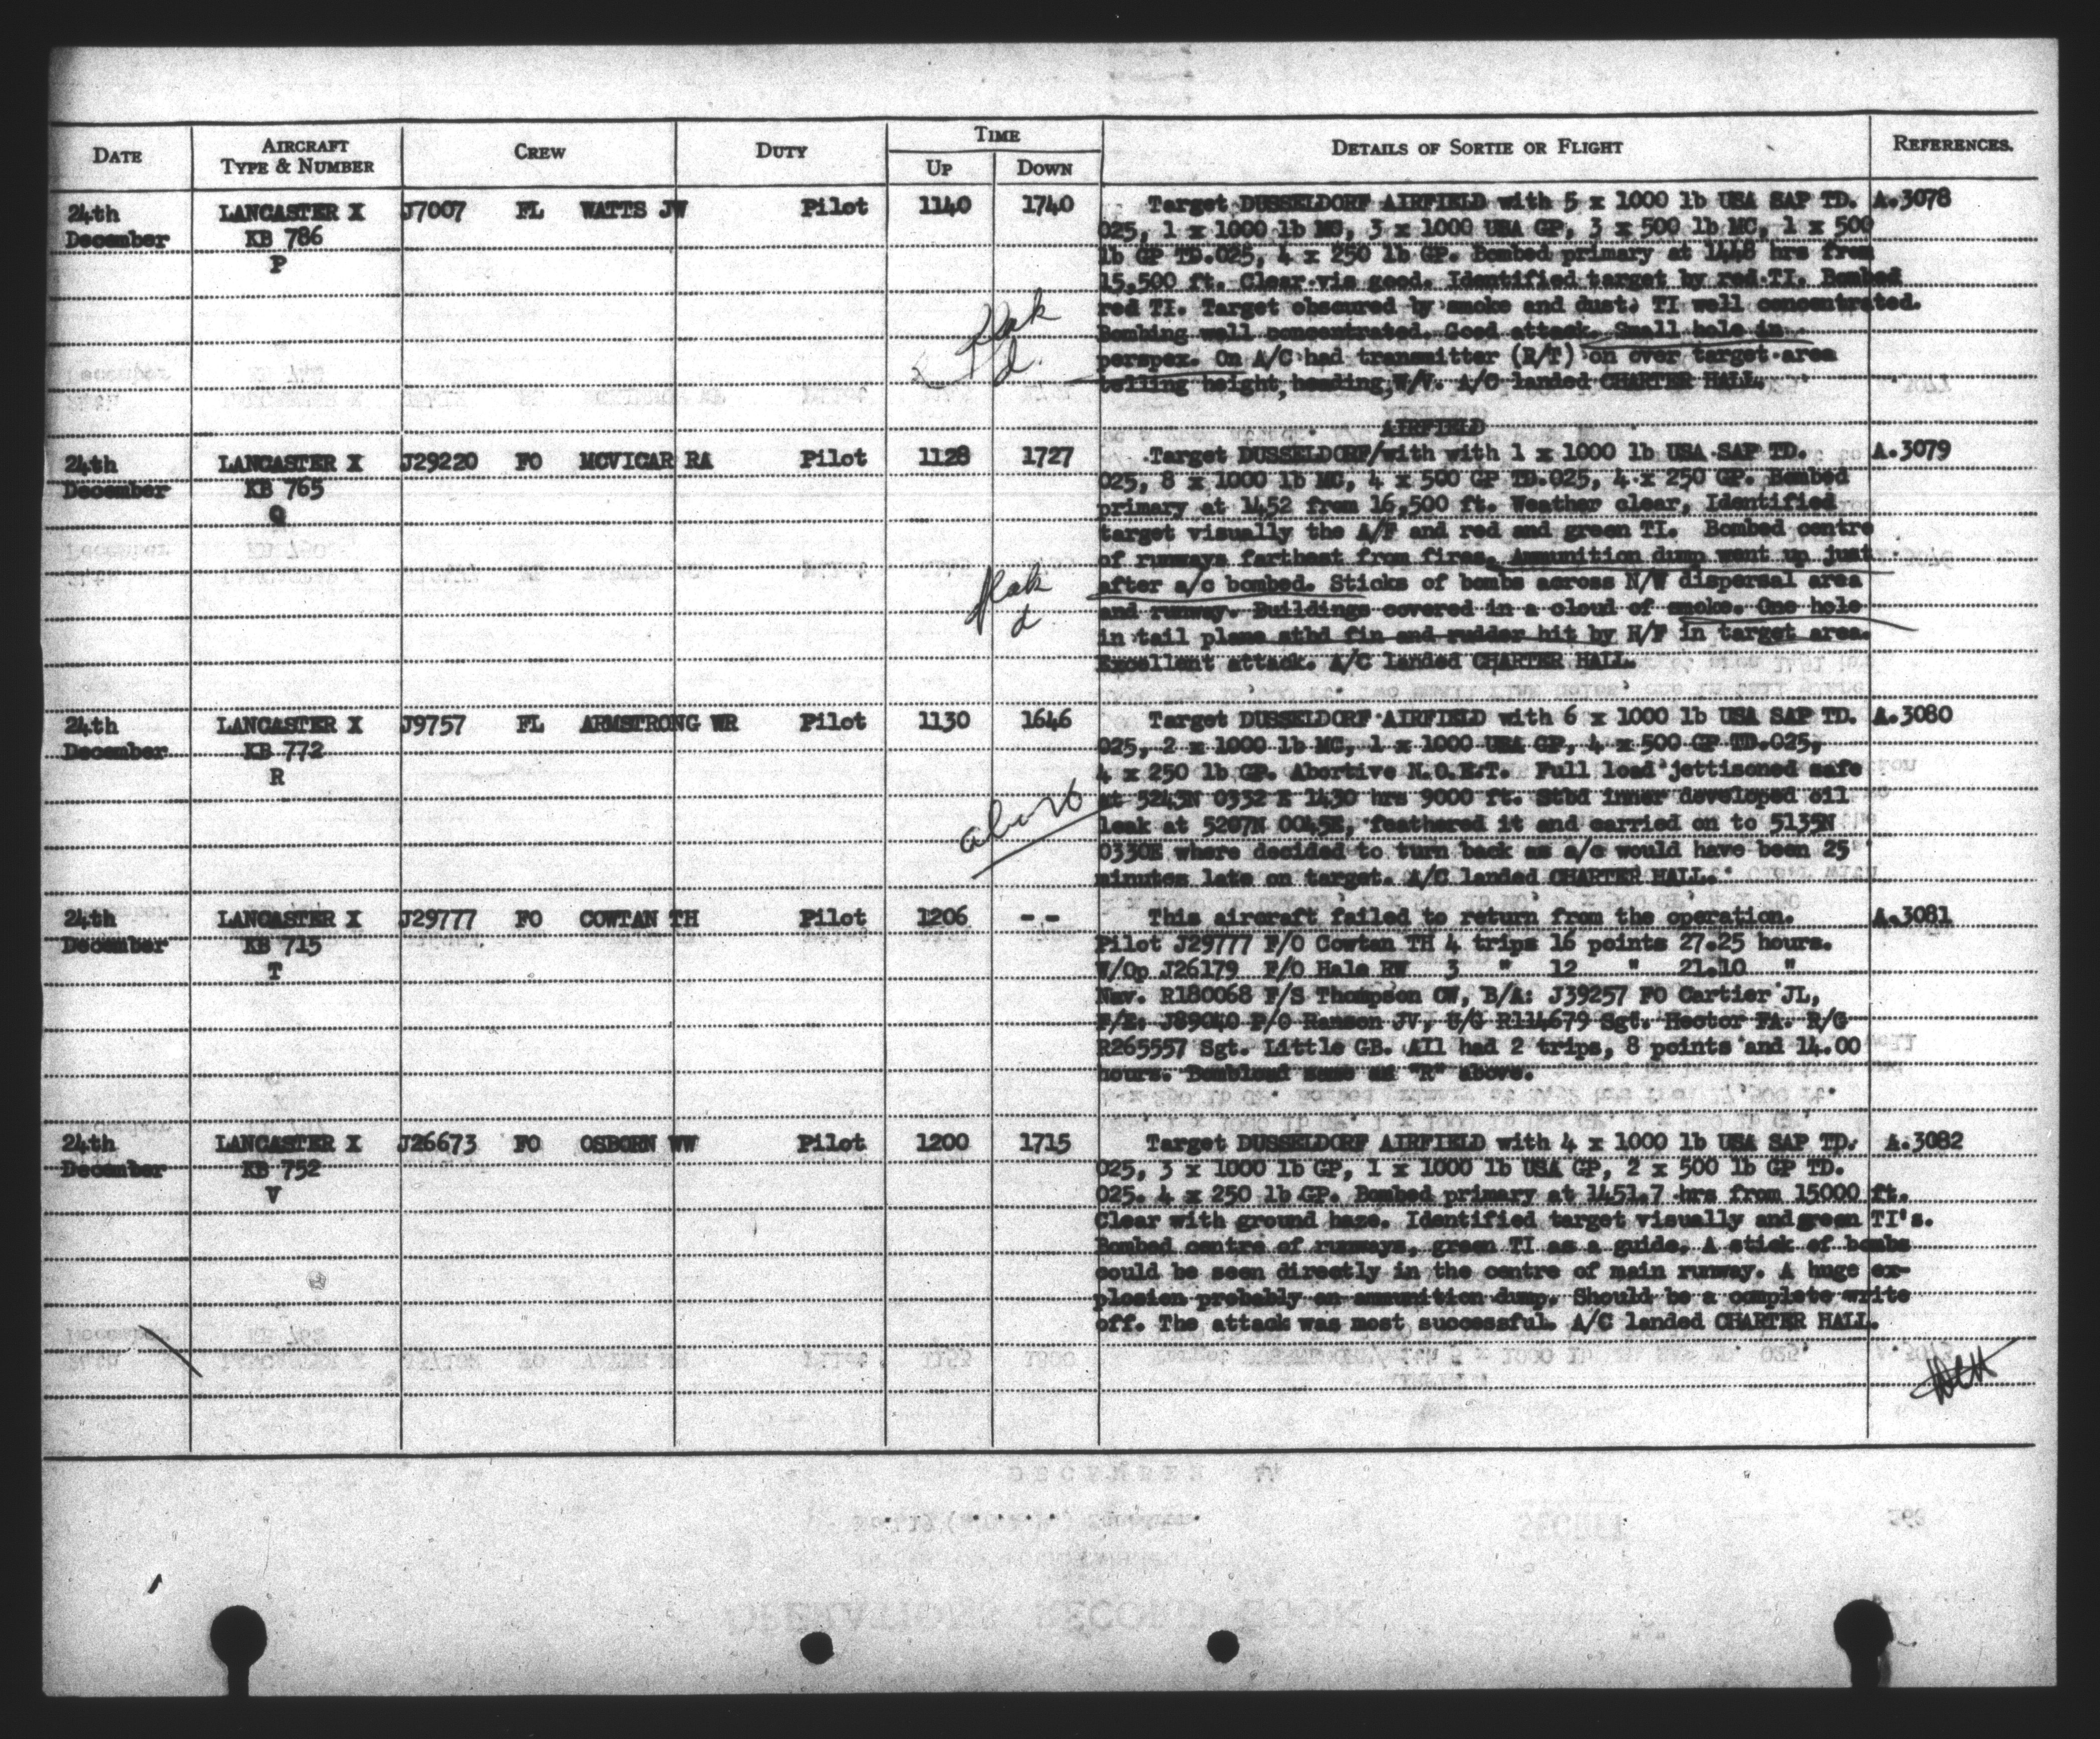 DATE AIRCRAFT TYPE & NUMBER CREW DUTY TIME UP DOWN DETAILS OF SORTIE OR FLIGHT REFERENCES.
24th LANCASTER X J7007 FL WATTS JW Pilot 1140 1740 Target DUSSELDORF AIRFIELD with 5 x 1000 lb USA SAP TD. A.3078
December KB 786 025, 1 x 1000 lb MC, 3 x 1000 USA GP, 3 x 500 lb MC, 1 x 500
P lb GP TD.025, 4 x 250 lb GP. Bombed primary at 1448 hrs from
15,500 ft. Clear vis good. Identified target by red TI. Bombed
red TI. Target obscured by smoke and dust. TI well concentrated.
flak Bombing well concentrated. Good attack. Small hole in
d. perspex. On A/C had transmitter (R/T) on over target area
telling height, heading, W/V. A/C landed CHARTER HALL.
AIRFIELD
24th LANCASTER X J29220 FO MCVICAR RA Pilot 1128 1727 Target DUSSELDORF/with with 1 x 1000 lb USA SAP TD. A.3079
December KB 765 025, 8 x 1000 lb MC, 4 x 500 GP TD.025, 4 x 250 GP. Bombed
Q primary at 1452 from 16,500 ft. Weather clear, Identified
target visually the A/F and red and green TI. Bombed centre
of runways farthest from fires. Ammunition dump went up just
flak after a/c bombed. Sticks of bombs across N/W dispersal area
d and runway. Buildings covered in a cloud of smoke. One hole
in tail plane stbd fin and rudder hit by H/F in target area.
Excellent attack. A/C landed CHARTER HALL.
24th LANCASTER X J9757 FL ARMSTRONG WR Pilot 1130 1646 Target DUSSELDORF AIRFIELD with 6 x 1000 lb USA SAP TD. A.3080
December KB 772 025, 2 x 1000 lb MC, 1 x 1000 USA GP, 4 x 500 GP TD.025,
R 4 x 250 lb GP. Abortive N.O.E.T. Full load jettisoned safe
abort at 5243N 0352 E 1430 hrs 9000 ft. Stbd inner developed oil
leak at 5207N 0045E, feathered it and carried on to 5135N
0330E where decided to turn back as a/c would have been 25
minutes late on target. A/C landed CHARTER HALL.
24th LANCASTER X J29777 FO COWTAN TH Pilot 1206 -- This aircraft failed to return from the operation. A.3081
December KB 715 Pilot J29777 F/O Cowtan TH 4 trips 16 points 27.25 hours.
T W/Op J26179 F/O Hale RW 3 " 12 " 21.10 "
Nav. R180068 F/S Thompson CW, B/A: J39257 FO Cartier JL,
F/E: J89040 P/O Ranson JV, U/G R114679 Sgt. Hector FA. R/G
R265557 Sgt. Little GB. All had 2 trips, 8 points and 14.00
hours. Bombload same as "R" above.
24th LANCASTER X J26673 FO OSBORN WW Pilot 1200 1715 Target DUSSELDORF AIRFIELD with 4 x 1000 lb USA SAP TD. A.3082
December KB 752 025, 3 x 1000 lb GP, 1 x 1000 lb USA GP, 2 x 500 lb GP TD.
V 025. 4 x 250 lb GP. Bombed primary at 1451.7 hrs from 15000 ft.
Clear with ground haze. Identified target visually and green TI's.
Bombed centre of runways, green TI as a guide. A stick of bombs
could be seen directly in the centre of main runway. A huge ex-
plosion probably an ammunition dump. Should be a complete write
off. The attack was most successful. A/C landed CHARTER HALL.